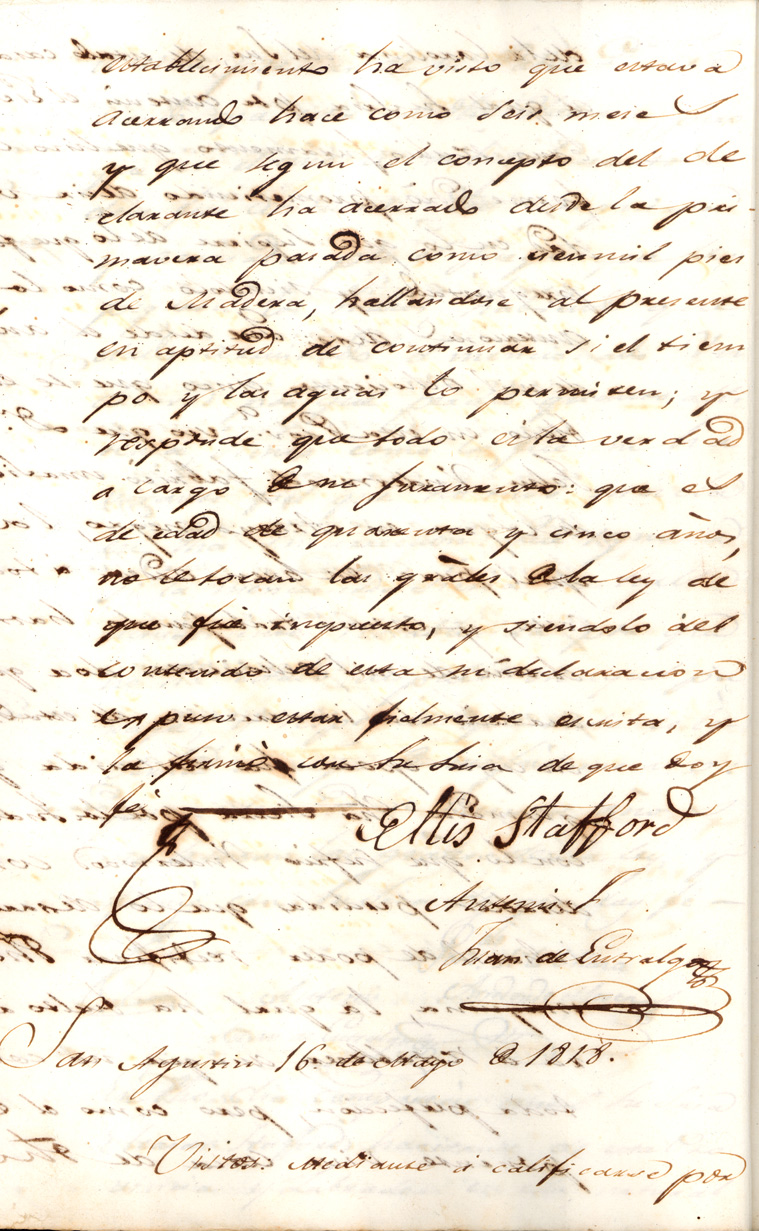 establecimiento ha visto que estava
acerrando hace como seis mese s
y que segun el concepto del de
clarante ha acerrado desde la pri-
mavera pasada como cienmil pies
de Madera, hallandose al presente
en aptitud de continuar si el tiem
po y las aguas lo permiten; y
responde que todo es la verdad
a cargo de su juramento: que es
de edad de quarenta y cinco años,
no le tocan las grāles de la ley de
que fue inpuesto, y siendolo del
contenido de esta su declaracion
expuso estar fielmente escrita, y
la firmó con su Sria de que doy
fé
Ellis Stafford
Antemi
Juan de Entralgo
San Agustin 16 de Mayo de 1818.
Vistos: Mediante á calificarse por